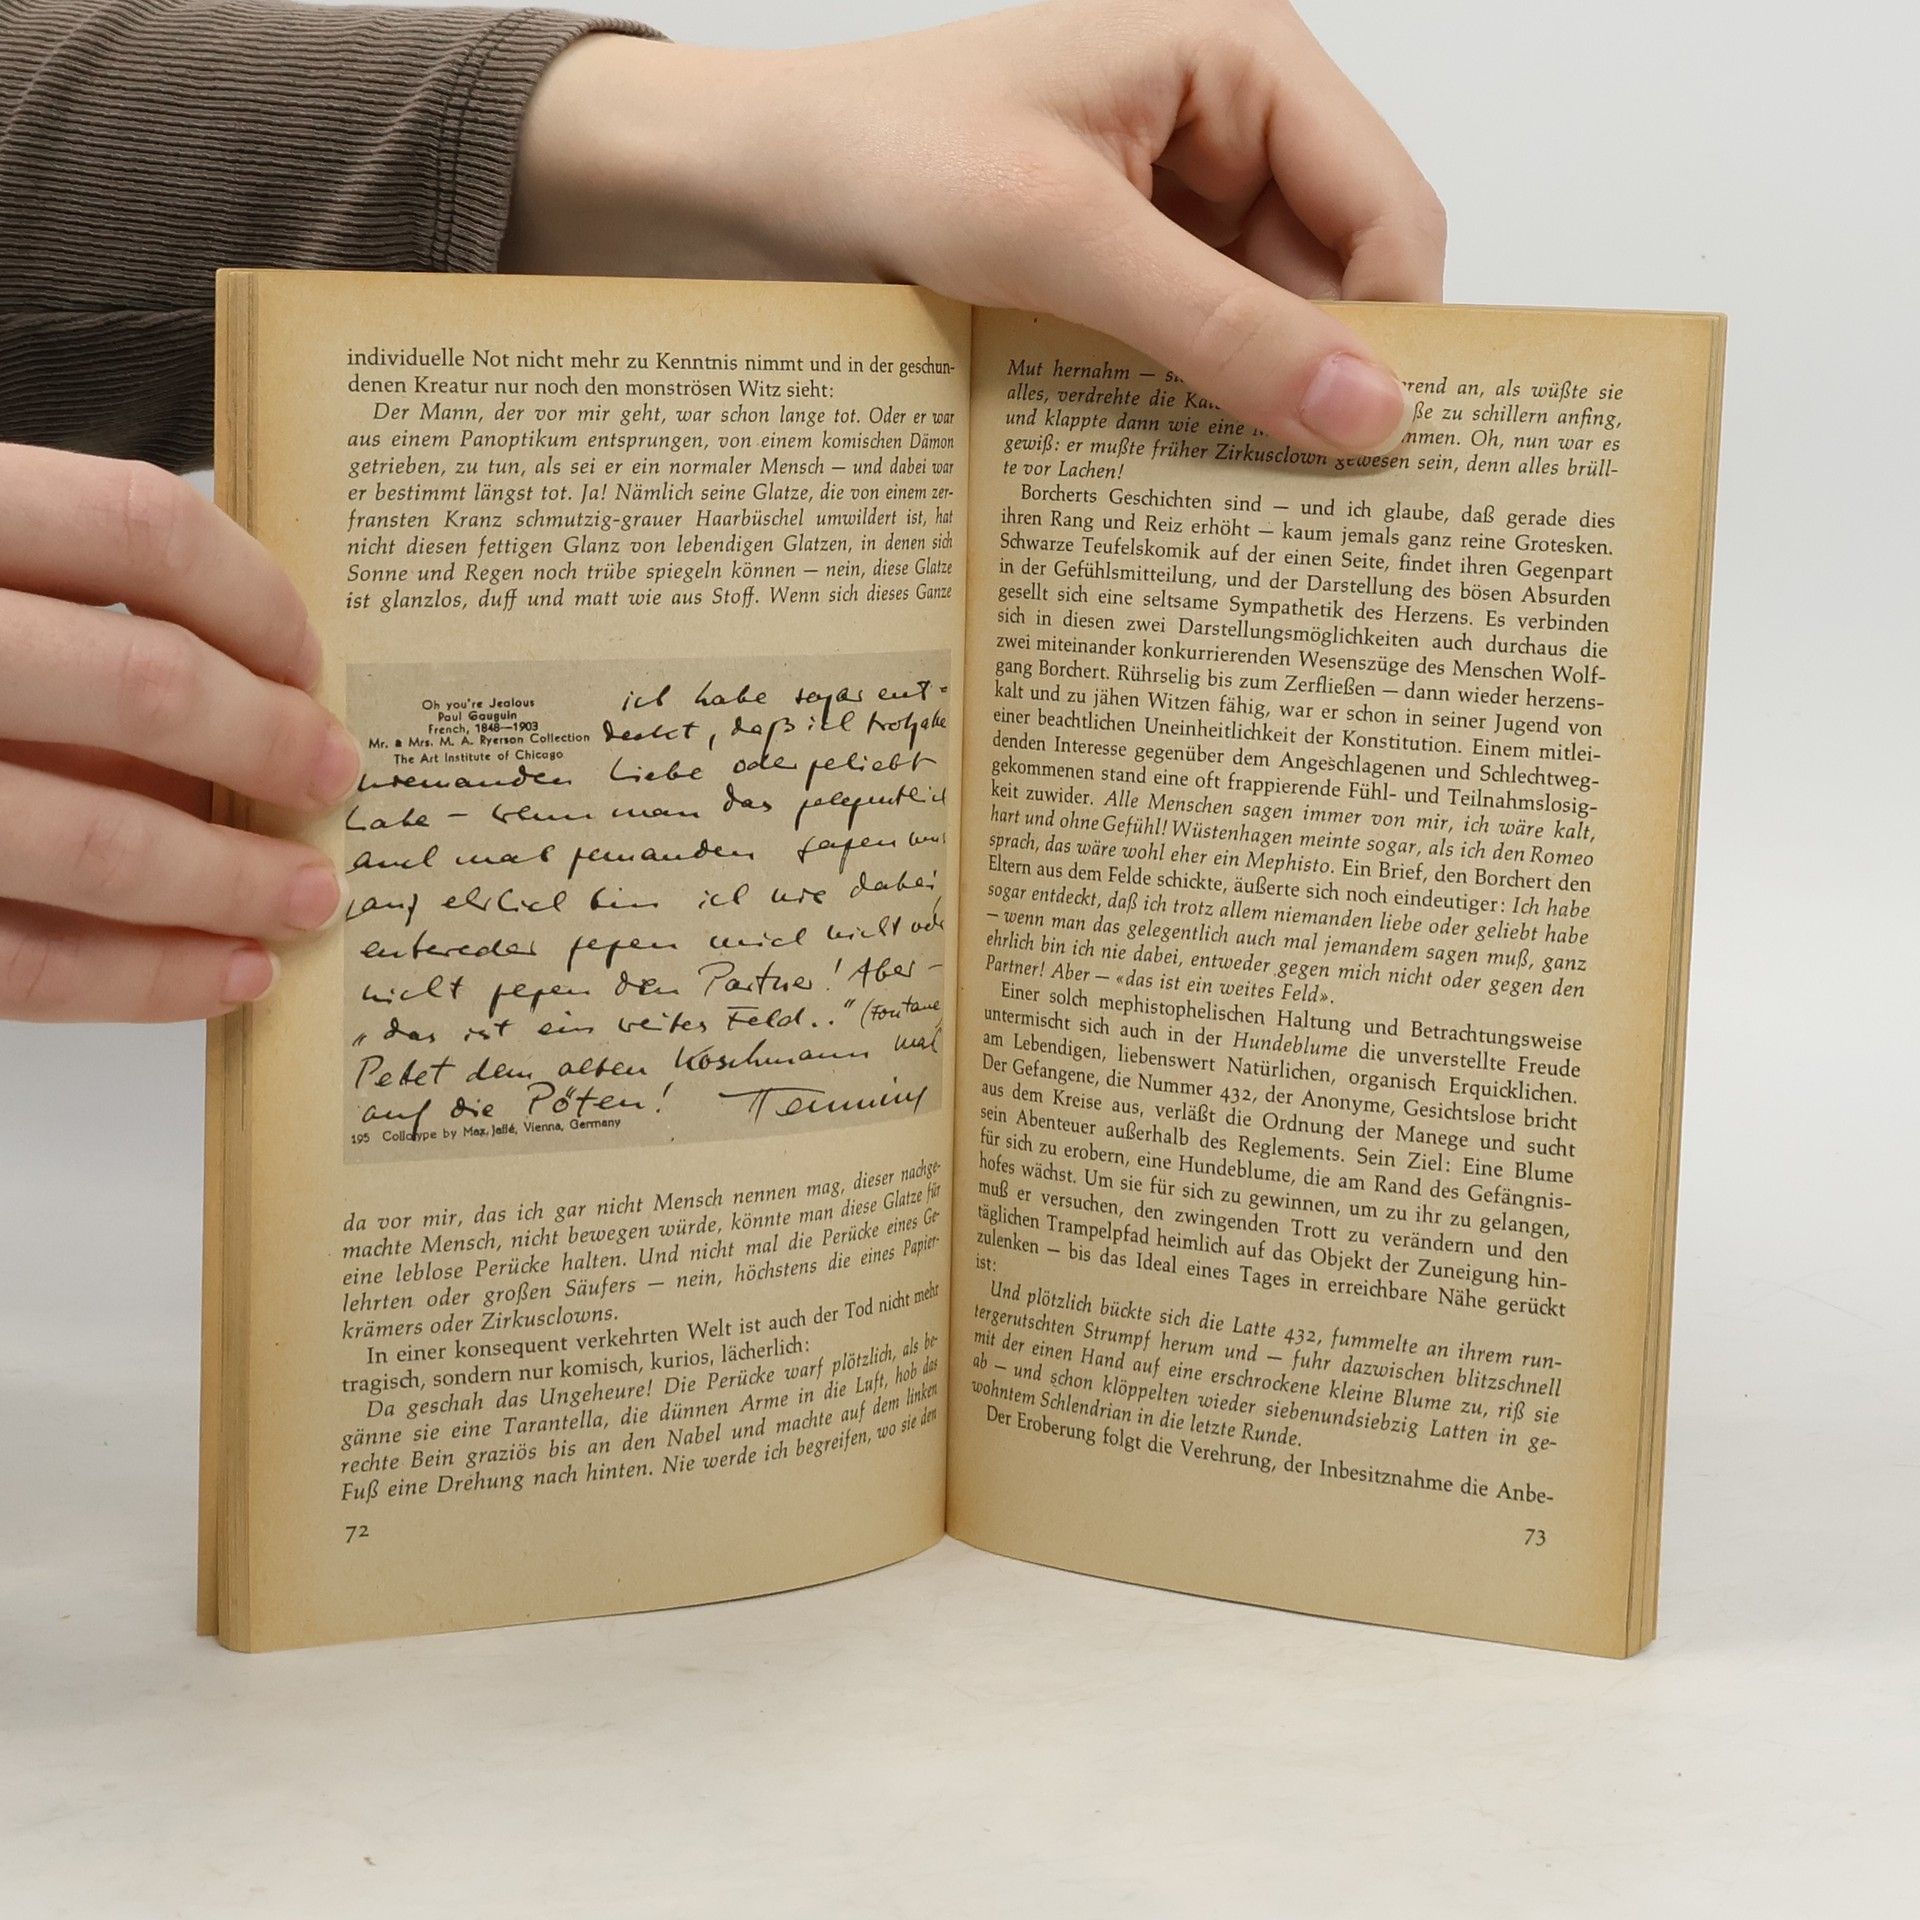 individuelle Not nicht mehr zu Kenntnis nimmt und in der geschun-
denen Kreatur nur noch den monströsen Witz sieht:
Der Mann, der vor mir geht, war schon lange tot. Oder er war
aus einem Panoptikum entsprungen, von einem komischen Dämon
getrieben, zu tun, als sei er ein normaler Mensch — und dabei war
er bestimmt längst tot. Ja! Nämlich seine Glatze, die von einem zer-
fransten Kranz schmutzig-grauer Haarbüschel umwildert ist, hat
nicht diesen fettigen Glanz von lebendigen Glatzen, in denen sich
Sonne und Regen noch trübe spiegeln können — nein, diese Glatze
ist glanzlos, duff und matt wie aus Stoff. Wenn sich dieses Ganze
Oh you're Jealous
Paul Gauguin
French, 1848—1903
Mr. & Mrs. M. A. Ryerson Collection
The Art Institute of Chicago
ich habe sogar ent-
deckt, daß ich trotz
niemanden liebe oder geliebt
habe – wenn man das gelegentlich
auch mal jemanden sagen
ganz ehrlich bin ich nie dabei,
entweder gegen mich nicht oder
nicht gegen den Partner! Aber –
„das ist ein weites Feld.." (Fontane)
Petet dem alten Koschmann mal
auf die Pöten!
195 Collotype by Max Jaffé, Vienna, Germany
da vor mir, das ich gar nicht Mensch nennen mag, dieser nachge-
machte Mensch, nicht bewegen würde, könnte man diese Glatze für
eine leblose Perücke halten. Und nicht mal die Perücke eines Ge-
lehrten oder großen Säufers — nein, höchstens die eines Papier-
krämers oder Zirkusclowns.
In einer konsequent verkehrten Welt ist auch der Tod nicht mehr
tragisch, sondern nur komisch, kurios, lächerlich:
Da geschah das Ungeheure! Die Perücke warf plötzlich, als be-
gänne sie eine Tarantella, die dünnen Arme in die Luft, hob das
rechte Bein graziös bis an den Nabel und machte auf dem linken
Fuß eine Drehung nach hinten. Nie werde ich begreifen, wo sie den
72
Mut hernahm — rend an, als wüßte sie
alles, verdrehte die ße zu schillern anfing,
und klappte dann wie eine mmen. Oh, nun war es
gewiß: er mußte früher Zirkusclown gewesen sein, denn alles brüll-
te vor Lachen!
Borcherts Geschichten sind — und ich glaube, daß gerade dies
ihren Rang und Reiz erhöht — kaum jemals ganz reine Grotesken.
Schwarze Teufelskomik auf der einen Seite, findet ihren Gegenpart
in der Gefühlsmitteilung, und der Darstellung des bösen Absurden
gesellt sich eine seltsame Sympathetik des Herzens. Es verbinden
sich in diesen zwei Darstellungsmöglichkeiten auch durchaus die
zwei miteinander konkurrierenden Wesenszüge des Menschen Wolf-
gang Borchert. Rührselig bis zum Zerfließen — dann wieder herzens-
kalt und zu jähen Witzen fähig, war er schon in seiner Jugend von
einer beachtlichen Uneinheitlichkeit der Konstitution. Einem mitlei-
denden Interesse gegenüber dem Angeschlagenen und Schlechtweg-
gekommenen stand eine oft frappierende Fühl- und Teilnahmslosig-
keit zuwider. Alle Menschen sagen immer von mir, ich wäre kalt,
hart und ohne Gefühl! Wüstenhagen meinte sogar, als ich den Romeo
sprach, das wäre wohl eher ein Mephisto. Ein Brief, den Borchert den
Eltern aus dem Felde schickte, äußerte sich noch eindeutiger: Ich habe
sogar entdeckt, daß ich trotz allem niemanden liebe oder geliebt habe
— wenn man das gelegentlich auch mal jemandem sagen muß, ganz
ehrlich bin ich nie dabei, entweder gegen mich nicht oder gegen den
Partner! Aber — «das ist ein weites Feld».
Einer solch mephistophelischen Haltung und Betrachtungsweise
untermischt sich auch in der Hundeblume die unverstellte Freude
am Lebendigen, liebenswert Natürlichen, organisch Erquicklichen.
Der Gefangene, die Nummer 432, der Anonyme, Gesichtslose bricht
aus dem Kreise aus, verläßt die Ordnung der Manege und sucht
sein Abenteuer außerhalb des Reglements. Sein Ziel: Eine Blume
für sich zu erobern, eine Hundeblume, die am Rand des Gefängnis-
hofes wächst. Um sie für sich zu gewinnen, um zu ihr zu gelangen,
muß er versuchen, den zwingenden Trott zu verändern und den
täglichen Trampelpfad heimlich auf das Objekt der Zuneigung hin-
zulenken — bis das Ideal eines Tages in erreichbare Nähe gerückt
ist:
Und plötzlich bückte sich die Latte 432, fummelte an ihrem run-
tergerutschten Strumpf herum und — fuhr dazwischen blitzschnell
mit der einen Hand auf eine erschrockene kleine Blume zu, riß sie
ab — und schon klöppelten wieder siebenundsiebzig Latten in ge-
wohntem Schlendrian in die letzte Runde.
Der Eroberung folgt die Verehrung, der Inbesitznahme die Anbe-
73